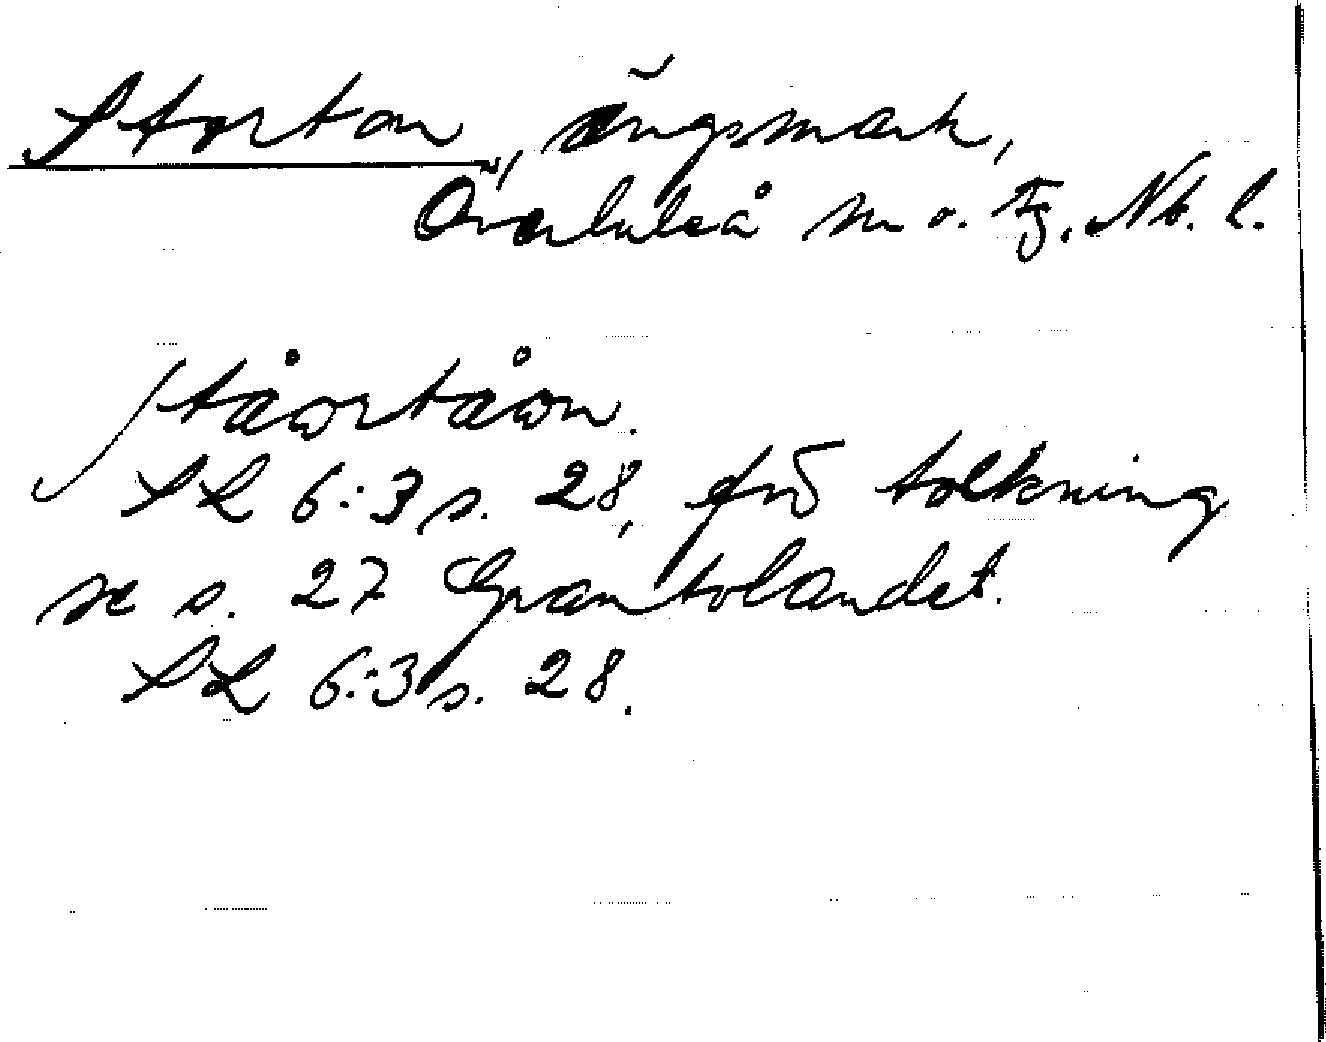 Storton, ängsmark,
Överluleå sn o. tg. Nb. l.
ståortåon.
SL 6:3 s. 28, för tolkning
se s. 27 Grantolandet.
SL 6:3 s. 28.